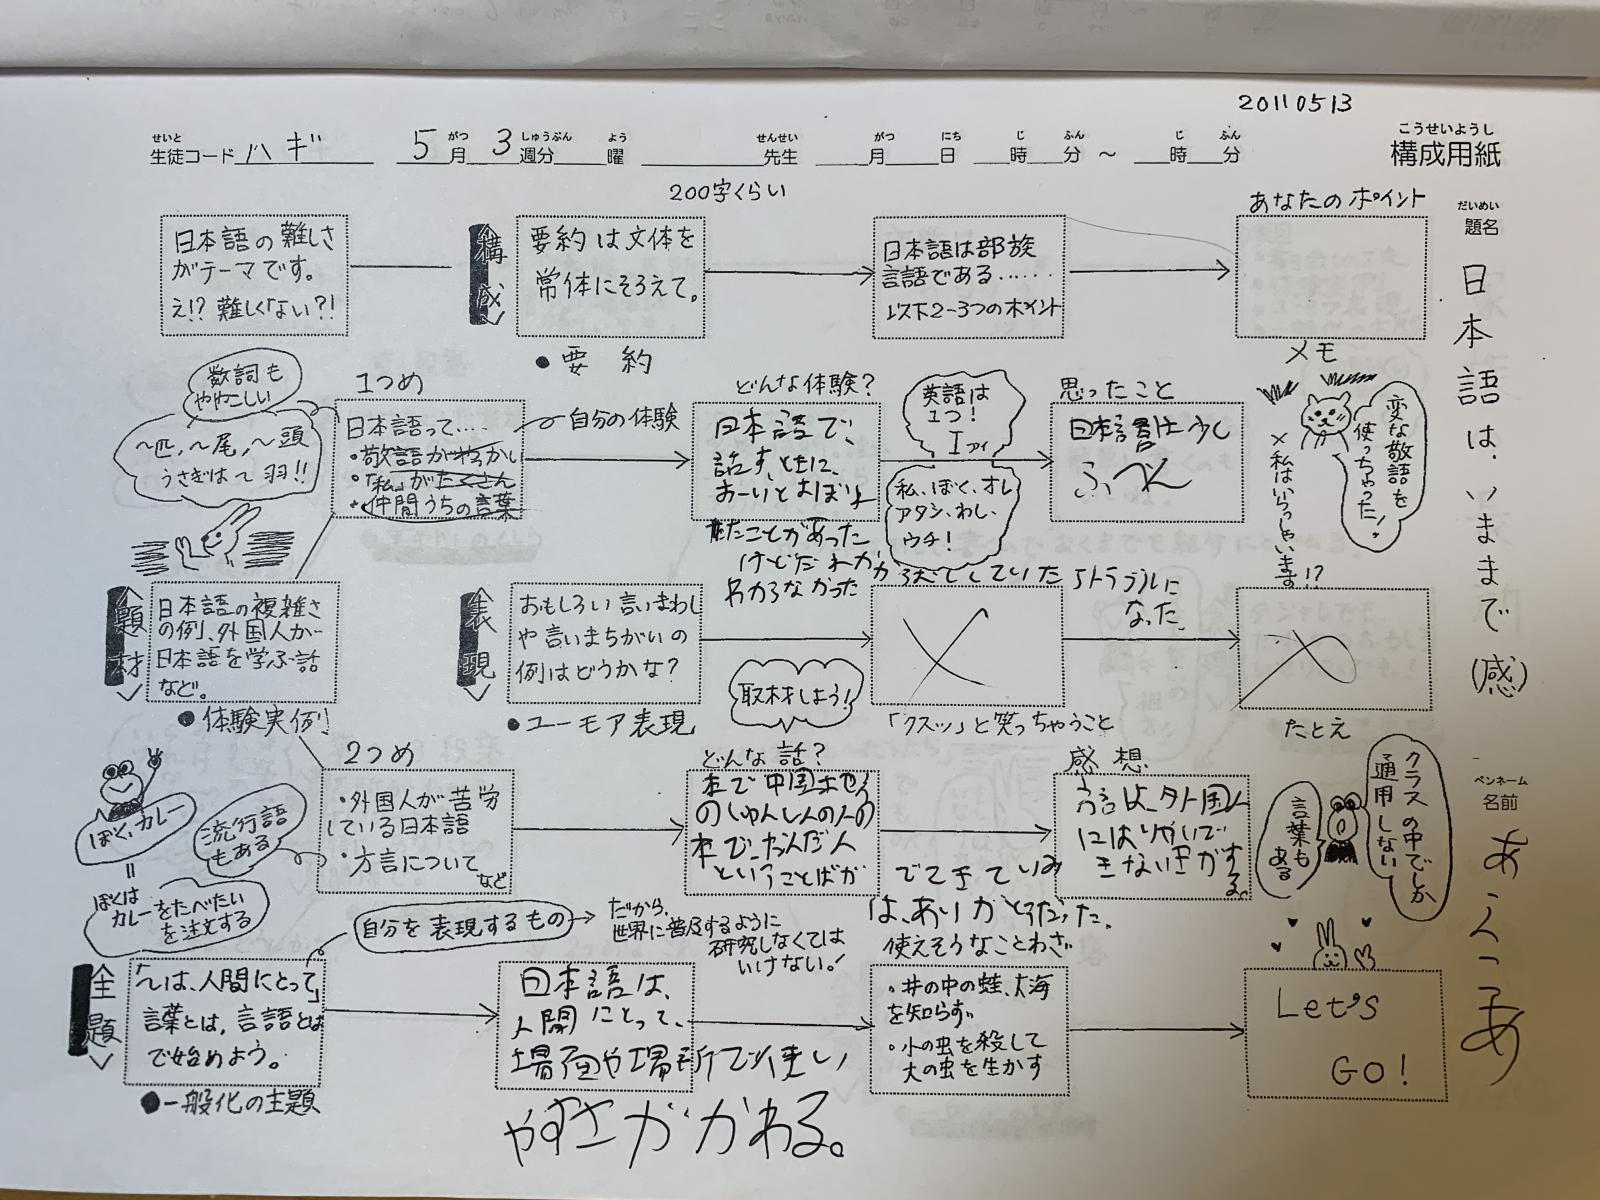 20110513
せいと がつ しゅうぶん よう せんせい がつ にち じ ふん じ ふん こうせいようし
生徒コード ハギ 5月 3週分 曜 先生 月 日 時 分 ～ 時 分 構成用紙
200字くらい
だいめい
題名
日本語は、いままで(感)
ペンネーム
名前
日本語の難しさ
がテーマです。
え!? 難しくない?!
構成
要約は文体を
常体にそろえて。
●要約
日本語は部族
言語である……
以下2-3つのポイント
あなたのポイント
メモ
数詞も
ややこしい
～匹,～尾,～頭
うさぎはて羽!!
1つめ
日本語って….
・敬語がやっかい
・「私」がたくさん
・仲間うちの言葉
自分の体験
どんな体験?
日本語で、
話すときに、
おーいとおぼえ
たことがあった
けどだれかが
わからなかった
英語は
1つ!
I アイ
私、ぼく、オレ
アタシ、わし、
ウチ!
思ったこと
日本語は少し
ふへん
変な敬語を
使っちゃった!
×私はいらっしゃいます!?
題材
日本語の複雑さ
の例、外国人が
日本語を学ぶ話
など。
●体験実例
表現
おもしろい言いまわし
や言いまちがいの
例はどうかな?
●ユーモア表現
トラブルに
なった。
取材しよう!
「クスッ」と笑っちゃうこと
たとえ
ぼく、カレー
=
ぼくは
カレーをたべたい
を注文する
流行語
もある
2つめ
・外国人が苦労
している日本語
・方言について
など
どんな話?
本で中国ませ
本で、
ということばが
でてきて
は、ありがとうだった。
感想
方言は、外国人
には
きない気がす
る。
クラスの中でしか
通用しない
言葉もある
自分を表現するもの
だから、
世界に普及するように
研究しなくては
いけない!
使えそうなことわざ
主題
「～は、人間にとって」
言葉とは,言語とは
で始めよう。
●一般化の主題
日本語は、
人間にとって、
場面や場所で使い
やすさがかわる。
・井の中の蛙、大海
を知らず
・小の虫を殺して
大の虫を生かす
Let's
GO!